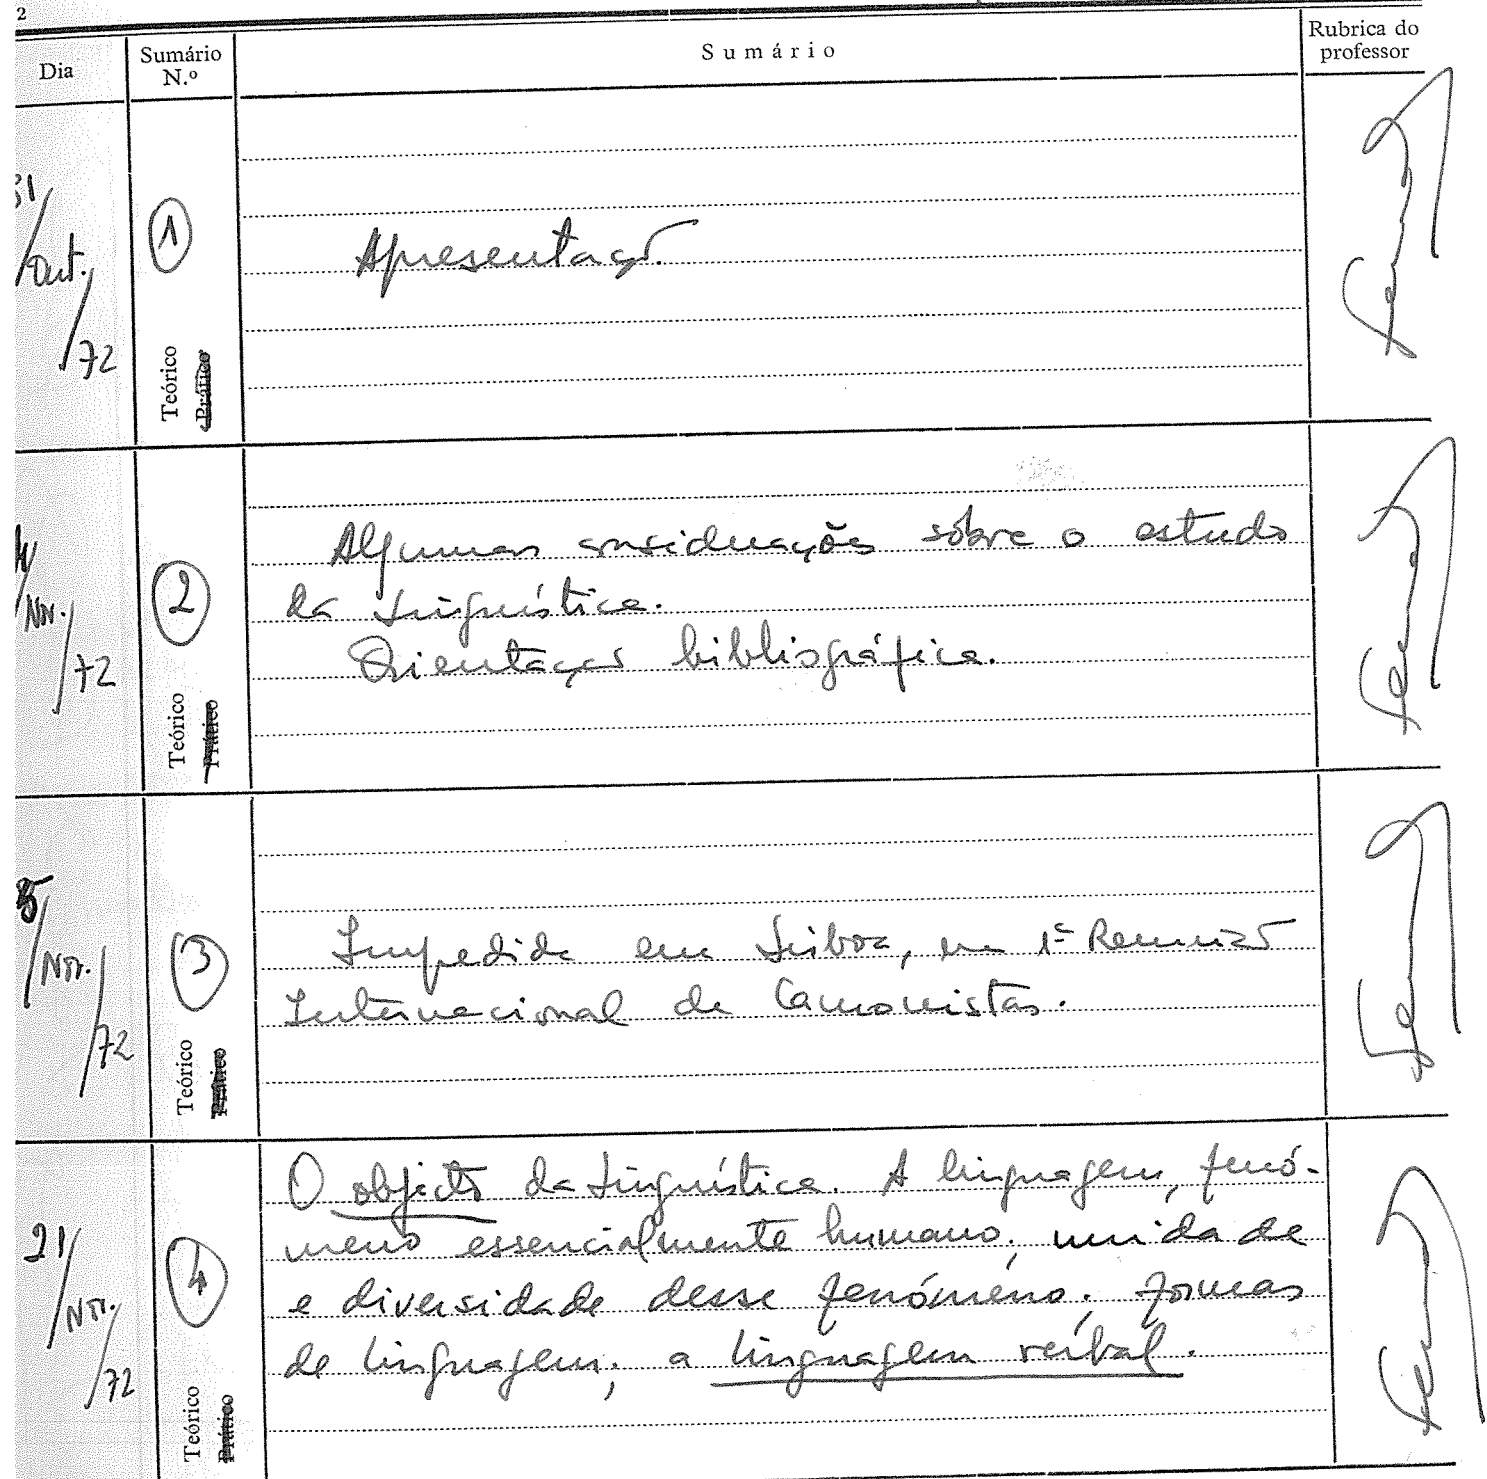 2
Dia
Sumário N.º
Sumário
Rubrica do professor
31/Out./72
1
Teórico
Prático
Apresentação.
Nov./72
2
Teórico
Prático
Algumas considerações sôbre o estudo
da Linguística.
Orientação bibliográfica.
Nov./72
3
Teórico
Prático
Impedida em Lisboa, na 1ª Reunião
Internacional de Camonistas.
21/Nov./72
4
Teórico
Prático
O objecto da Linguística. A linguagem, fenó-
meno essencialmente humano; unidade
e diversidade desse fenómeno; formas
de linguagem; a linguagem verbal.